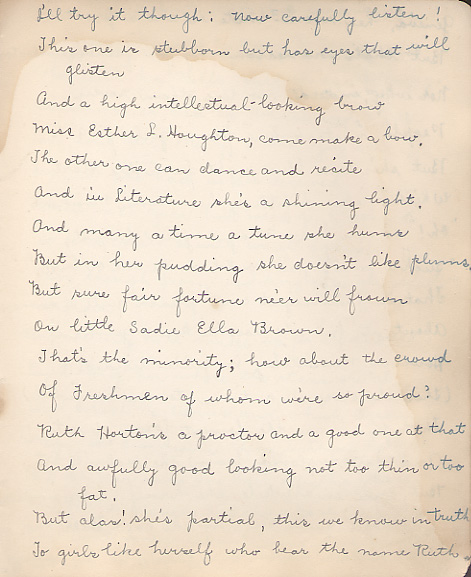 I'll try it though: Now carefully listen!
This one is stubborn but has eyes that will
glisten
And a high intellectual-looking brow
Miss Esther L. Houghton, come make a bow.
The other one can dance and recite
And in Literature she's a shining light.
And many a time a tune she hums
But in her pudding she doesn't like plums,
But sure fair fortune ne'er will frown
On little Sadie Ella Brown.
That's the minority; how about the crowd
Of Freshmen of whom we're so proud?
Ruth Horton's a proctor and a good one at that
And awfully good looking not too thin or too
fat.
But alas! she's partial, this we know in truth
To girls like herself who bear the name Ruth.